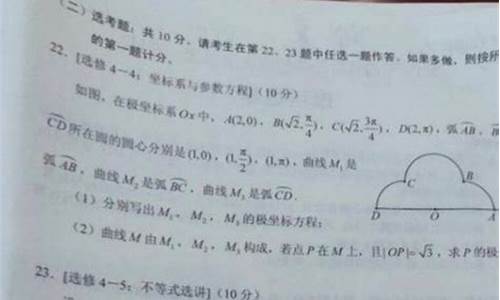 (二)选考题:共10分。请考生在第22、23题中任选一题作答。如果多做,则按所
的第一题计分。
22. [选修4—4:坐标系与参数方程](10分)
如图,在极坐标系Ox中,A(2,0),B(√2,π/4),C(√2,3π/4),D(2,π),弧AB,
CD所在圆的圆心分别是(1,0),(1,π/2),(1,π),曲线M₁是
弧AB,曲线M₂是弧BC,曲线M₃是弧CD.
C
B
D
O
A
(1)分别写出M₁,M₂,M₃的极坐标方程;
(2)曲线M由M₁,M₂,M₃构成,若点P在M上,且|OP|=√3,求P的极
23. [选修4—5:不等式选讲](10分)